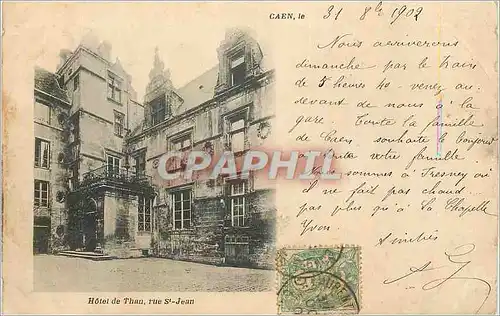 CAEN, le 31 8bre 1902
Nous arriverons
dimanche par le train
de 5 heures 40 - venez au-
devant de nous à la
gare. Toute la famille
de Caen souhaite le bonjour
à toute votre famille
CPARAMA
Nous sommes à Fresney où
il ne fait pas chaud
pas plus qu'à La Chapelle
Yvon.
Amitiés
Hôtel de Than, rue St-Jean